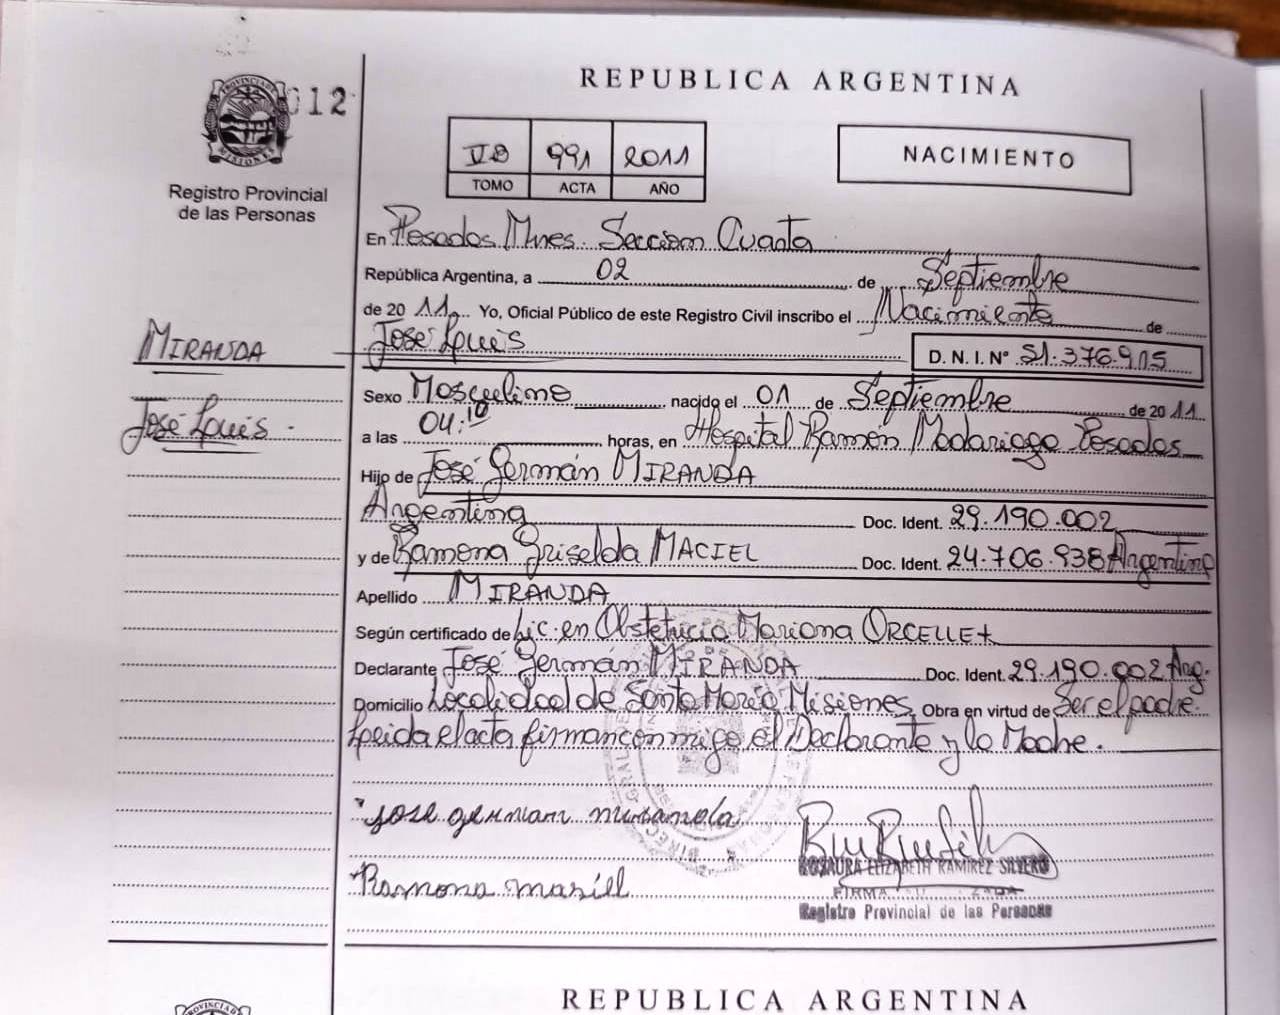 REPUBLICA ARGENTINA
012
PROVINCIA DE MISIONES
Registro Provincial
de las Personas
991 2011
TOMO ACTA AÑO
NACIMIENTO
En Posadas Mnes. Sección Cuarta
República Argentina, a 02 de Septiembre
de 2011. Yo, Oficial Público de este Registro Civil inscribo el Nacimiento de
MIRANDA
José Luis
José Luis
D. N. I. Nº 51.376.915
Sexo Masculino nacido el 01 de Septiembre de 2011
a las 04:10 horas, en Hospital Ramón Madariaga Posadas
Hijo de José Germán MIRANDA
Argentina Doc. Ident. 29.190.002
y de Ramona Griselda MACIEL Doc. Ident. 24.706.938 Argentina
Apellido MIRANDA
Según certificado de Lic. en Obstetricia Mariana ORCELLET
Declarante José Germán MIRANDA Doc. Ident. 29.190.002 Arg.
Domicilio Localidad de Santa María Misiones Obra en virtud de Ser el padre.
Leida el acta firman conmigo el Declarante y la Madre.
jose german miranda
Ramona masiell
ROSAURA ELIZABETH RAMIREZ SILVERO
FIRMA
Registro Provincial de las Personas
REPUBLICA ARGENTINA
PROVINCIA